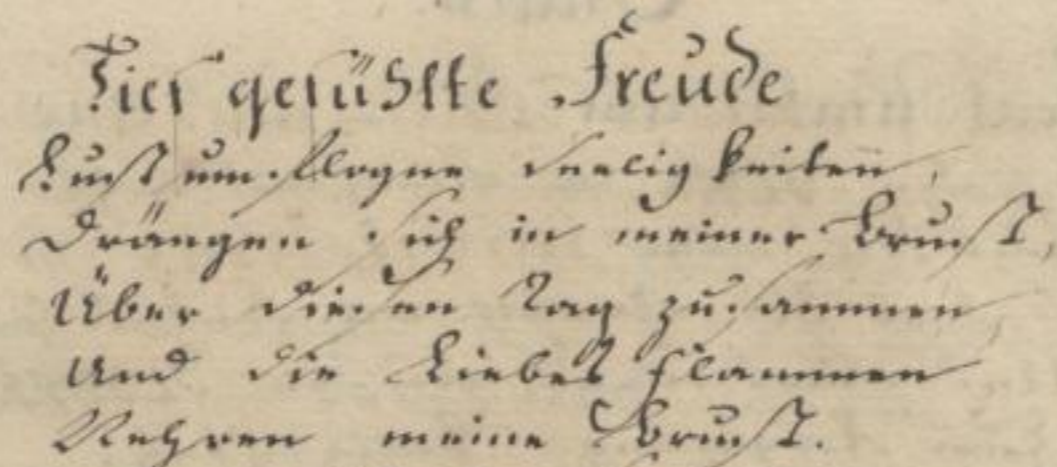 Tief gefühlte Freude
Lust umflogne Seeligkeiten,
Drängen sich in meiner Brust,
Über diesen Tag zusammen,
Und die Liebes Flammen
Nehren meine Brust.